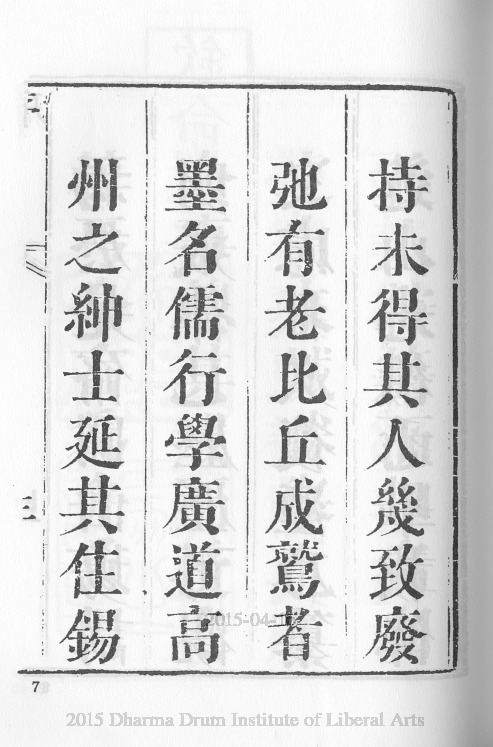 持未得其人幾致廢
弛有老比丘成鷲者
墨名儒行學廣道高
州之紳士延其住錫
三
7
2015-04-17
2015 Dharma Drum Institute of Liberal Arts